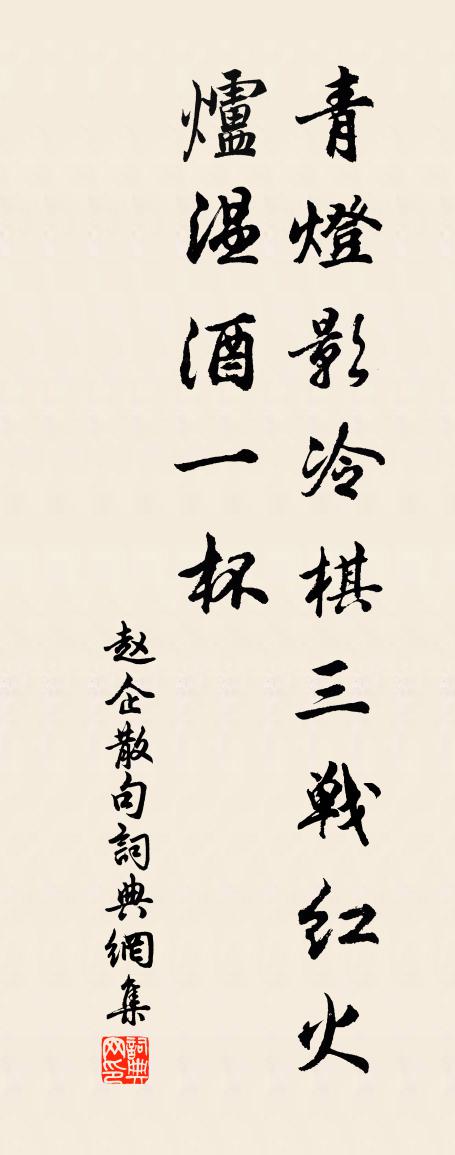 青燈影冷棋三戦紅火
爐温酒一杯
赵企散句詞典網集
詞典网印